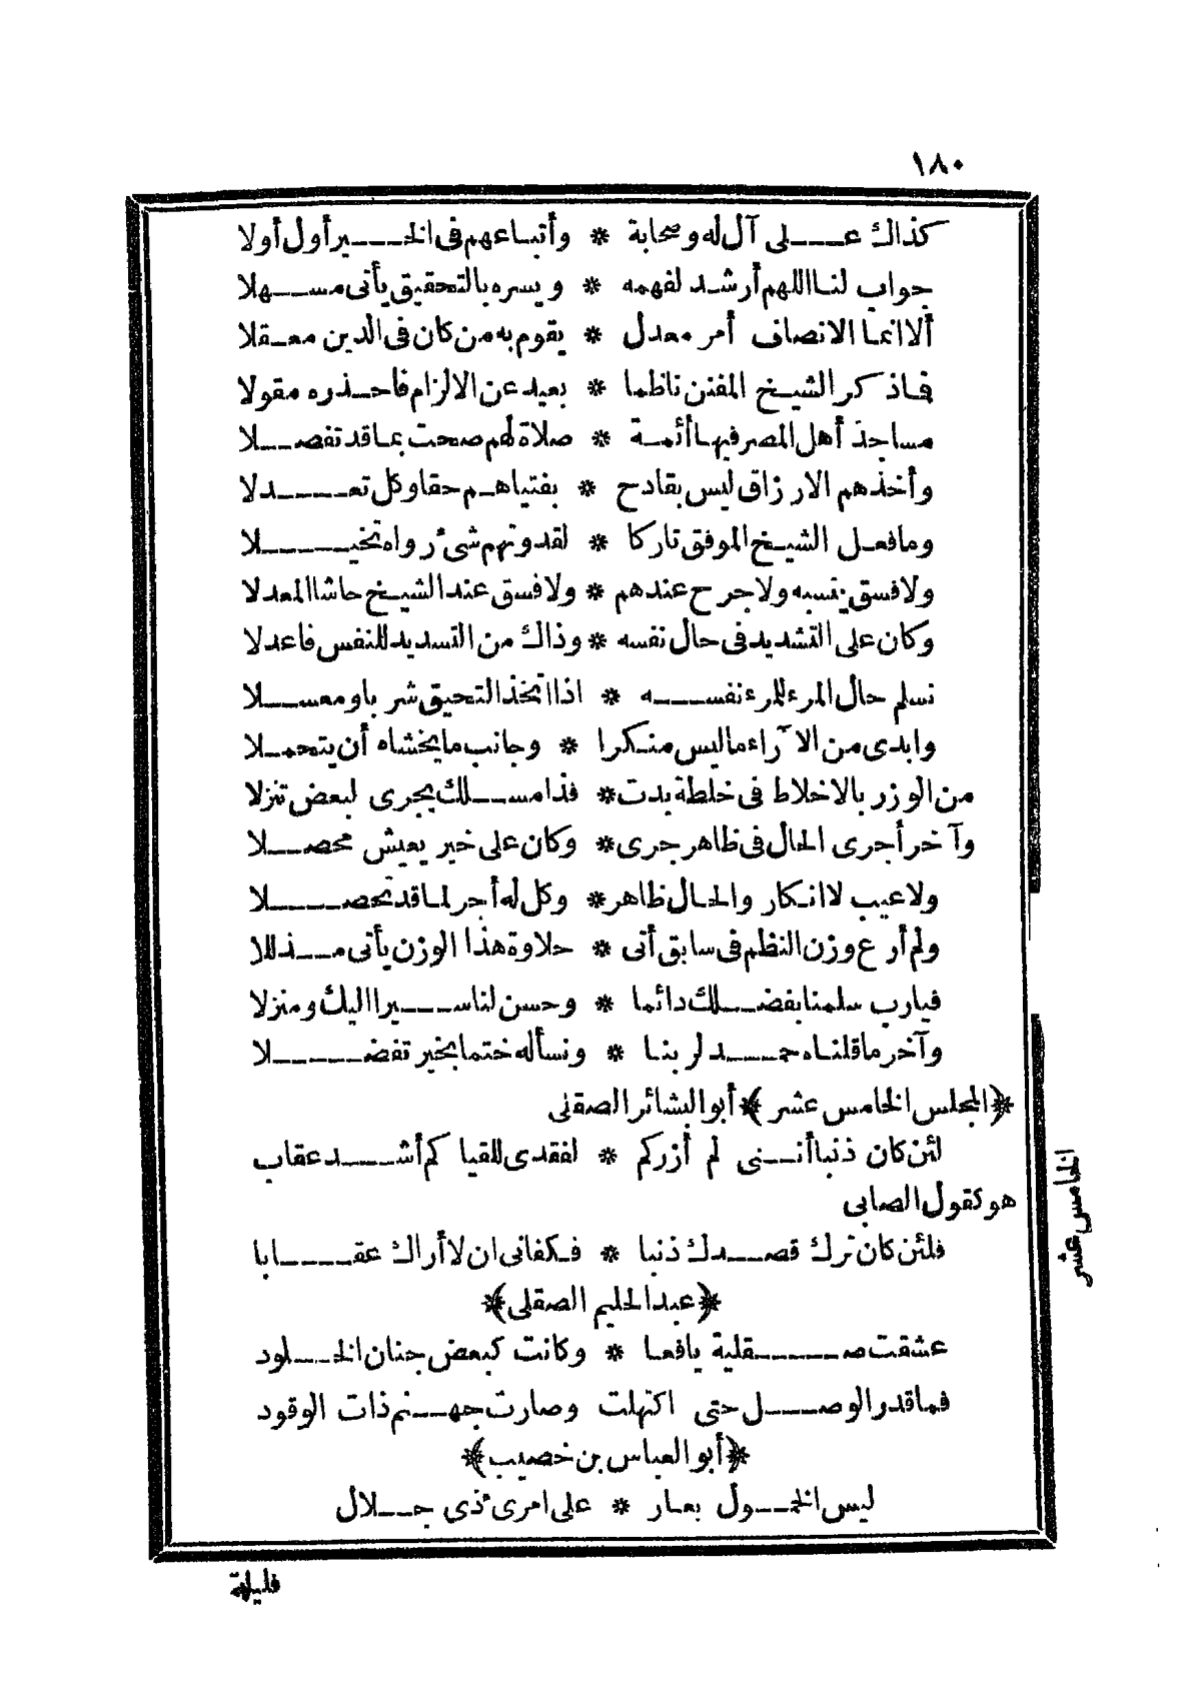 ١٨٠
كذاك على آل له وصحابة * وأتباعهم فى الخير أول أولا
جواب لنا اللهم أرشد لفهمه * ويسره بالتحقيق يأتى مسهلا
ألا انما الانصاف أمر معدل * يقوم به من كان فى الدين معقلا
فاذكر الشيخ المفنن ناظما * بعيد عن الالزام فاحذره مقولا
مساجد أهل المصر فيها أئمة * صلاة لهم صحت بما قد تفصلا
وأخذهم الارزاق ليس بقادح * بفتياهم حقا وكل تعدلا
وما فعل الشيخ الموفق تاركا * لقدوتهم شئ رواه تخيلا
ولا فسق ينسبه ولا جرح عندهم * ولا فسق عند الشيخ حاشا المعدلا
وكان على التشديد فى حال نفسه * وذاك من التسديد للنفس فاعدلا
نسلم حال المرء للمرء نفسه * اذا اتخذ التحيق شربا ومعسلا
وابدى من الآراء ما ليس منكرا * وجانب ما يخشاه أن يتحملا
من الوزر بالاخلاط فى خلطة بدت * فذا مسلك يجرى لبعض تنزلا
وآخر أجرى الحال فى ظاهر جرى * وكان على خير يعيش محصلا
ولا عيب لا انكار والحال ظاهر * وكل له أجر لما قد تحصلا
ولم أرع وزن النظم فى سابق أتى * حلاوة هذا الوزن يأتى مذللا
فيارب سلمنا بفضلك دائما * وحسن لنا سيرا اليك ومنزلا
وآخر ما قلناه حمد لربنا * ونسأله ختما بخير تفضلا
﴿المجلس الخامس عشر﴾ أبو البشائر الصقلى
لئن كان ذنبا أننى لم أزركم * لفقدى للقياكم أشد عقاب
هو كقول الصابى
فلئن كان ترك قصدك ذنبا * فكفانى ان لا أراك عقابا
﴿عبد الحليم الصقلى﴾
عشقت صقلية يافعا * وكانت كبعض جنان الخلود
فما قدر الوصل حتى اكتهلت وصارت جهنم ذات الوقود
﴿أبو العباس بن خصيب﴾
ليس الخمول بعار * على امرئ ذى جلال
فليلة
الخامس عشر